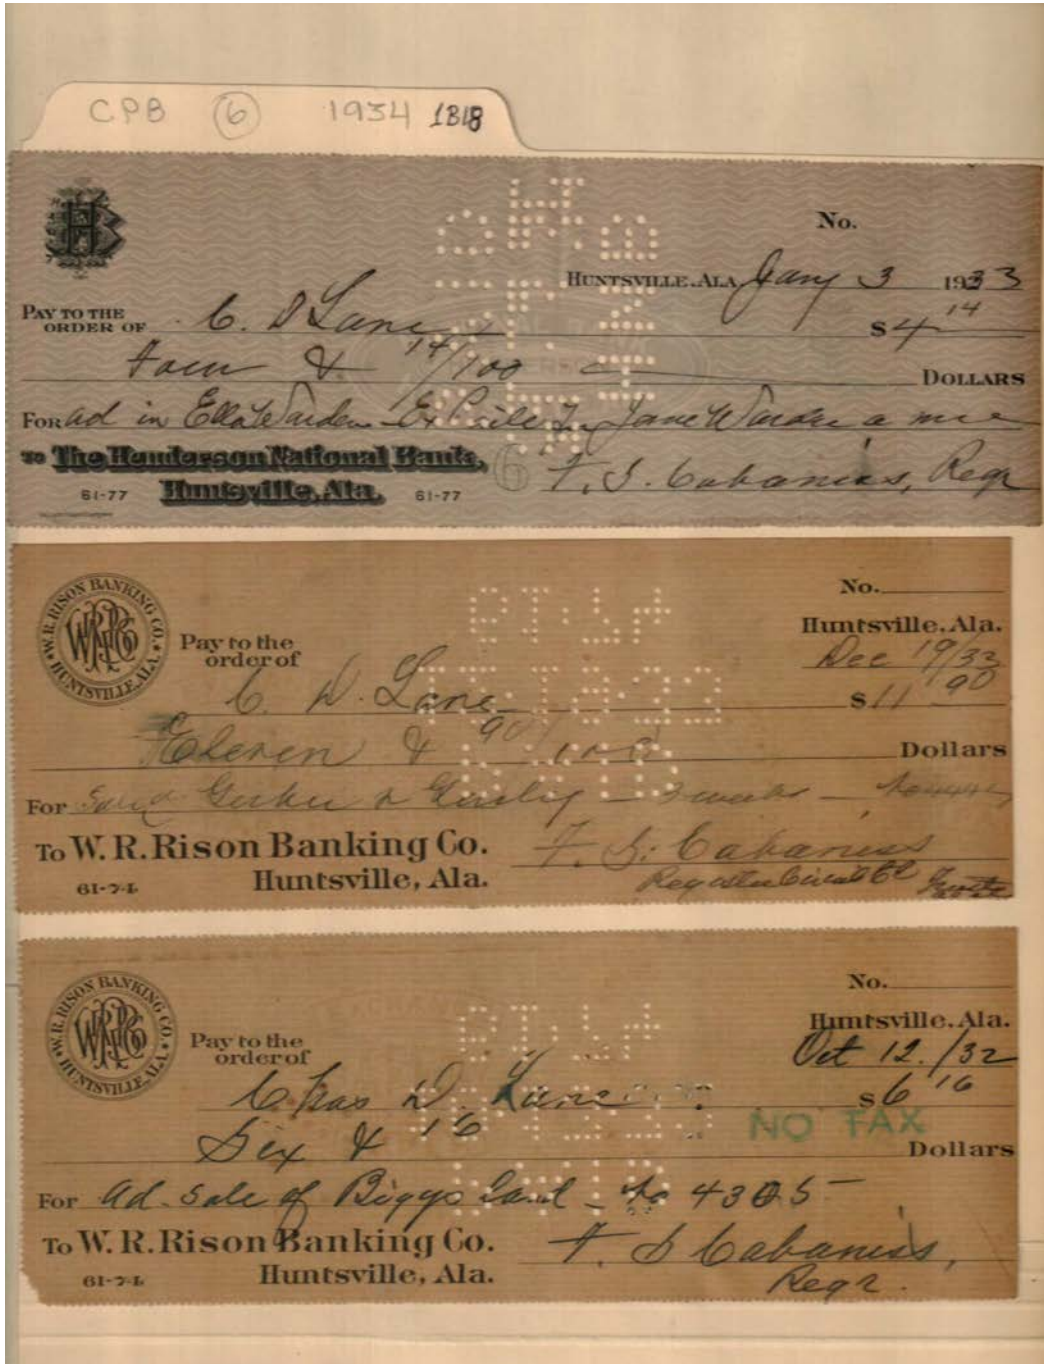 CPB 6 1934 1318
No.
HUNTSVILLE, ALA. Jany 3 1933
PAY TO THE ORDER OF C. D Lane $4 14
Four & 14/100 DOLLARS
FOR ad in Ella Warden Ex Jane Warden a
TO The Henderson National Bank,
61-77 Huntsville, Ala. 61-77
6
F. S. Cabaniss, Regr
W. R. RISON BANKING CO. HUNTSVILLE, ALA.
No.
Huntsville, Ala.
Dec 19/32
Pay to the order of C. D. Lane $11 90
Eleven & 90/100 Dollars
For
To W. R. Rison Banking Co. F. S. Cabaniss
61-74 Huntsville, Ala. Register Circuit Ct
W. R. RISON BANKING CO. HUNTSVILLE, ALA.
No.
Huntsville, Ala.
Oct 12./32
Pay to the order of Chas D. Lane $6 16
NO TAX
Six & 16 Dollars
For ad. sale of Biggs Land - No 4305
To W. R. Rison Banking Co. F. S Cabaniss,
61-74 Huntsville, Ala. Regr.